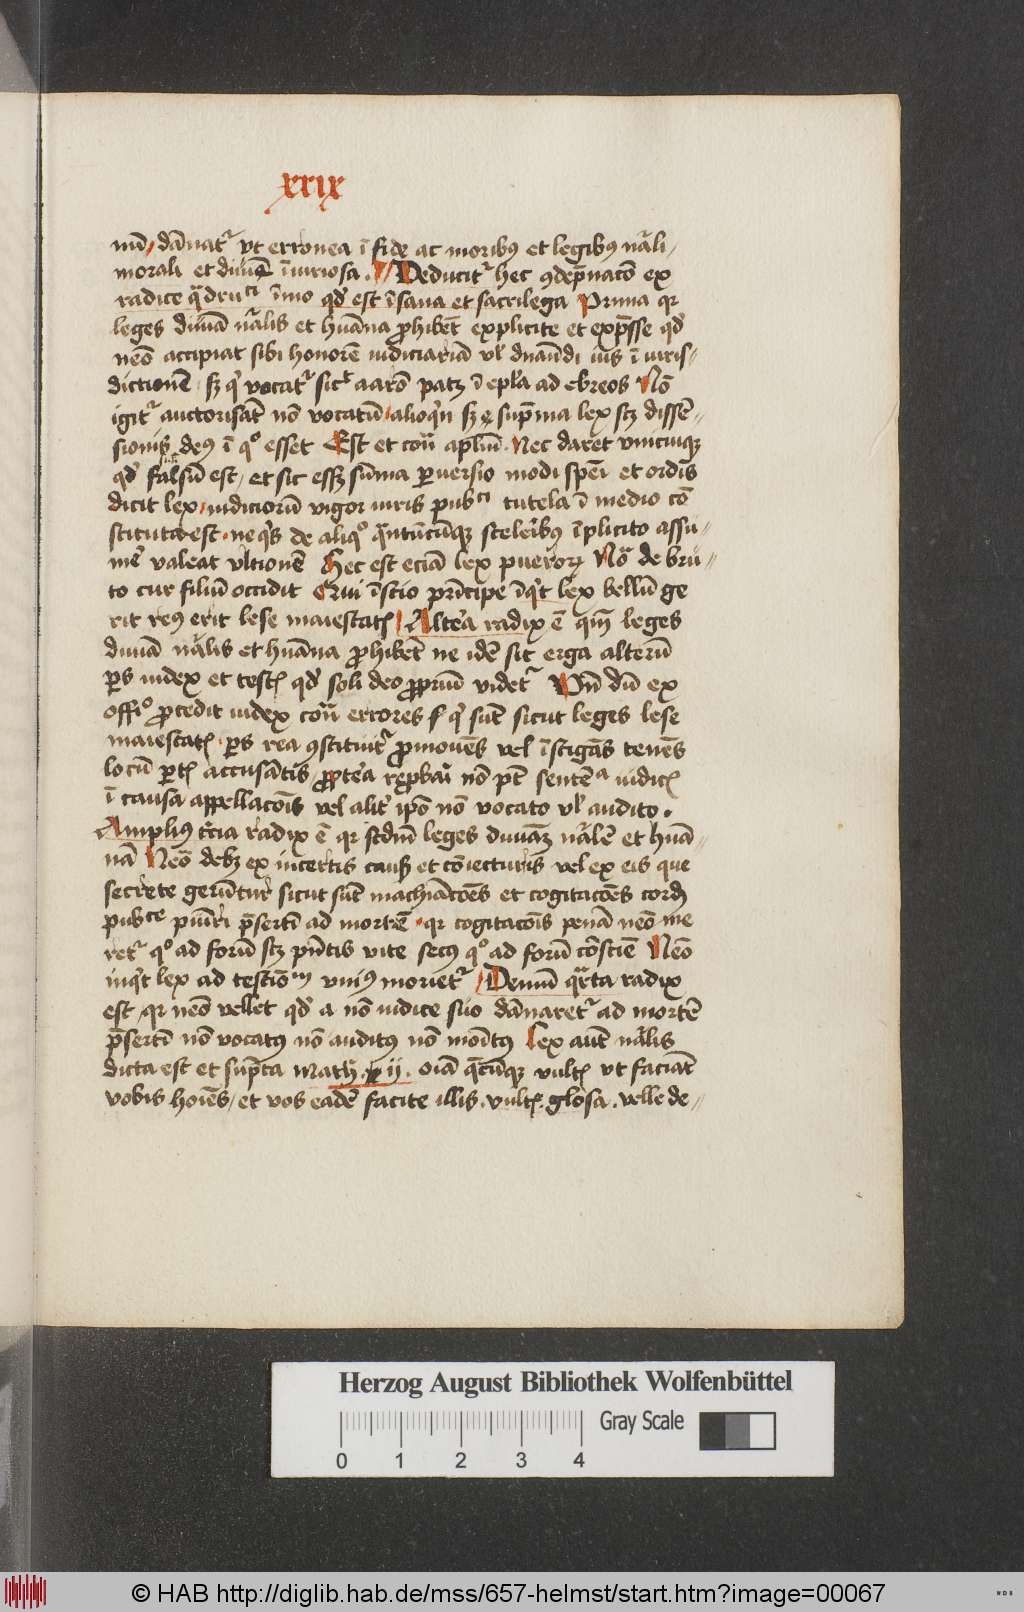 xxix
nū / dānat᷑ vt erronea ī fide ac moribꝰ et legibꝰ nāli /
morali et diuīe īiuriosa . Deducit᷑ hec ꝯdēpnatō ex
radice quādruᶜⁱ īmo qđ est īsana et sacrilega Prima qr
leges diuīa nālis et huāna ꝓhibēt explicite et exp̄sse qđ
nēo accipiat sibi honorē iudiciariā vl̕ dnāndi ius ī iuris-
dictionē sꝫ q̕ vocat᷑ sic̕ aarō patꝫ ī epl̕a ad ebreos Nō
igit᷑ auctorisat̄ nō vocatū alioq̕n sꝫ sup̄ma lex scꝫ dissē-
sionis deꝰ ī qᵒ esset Est et cōū apl̕m̄ . Nec daret vnicuiqꝫ
qđ falsū est / et sic essꝫ sūma ꝑuersio modi spēi et ordīs
dicit lex iudiciorū vigor iuris pubᶜⁱ tutela ī medio cō
stituta est ne q̕s de aliqᵒ quātūcūqꝫ sceleribꝰ īplicito assu-
me᷑ valeat vltionē Hec est eciā lex pueroꝝ Nō de bru-
to cur filiū occidit Qui īscio prīcipe īq̕t lex bellū ge
rit reꝰ erit lese maiestatꝭ Alte᷑a radix ē qm̄ leges
diuīa nālis et huāna ꝓhibēt ne idē sit erga alterū
ꝑs iudex et testꝭ qđ soli deo ꝓpriū videt᷑ Vn̄ dū ex
offīᵒ ꝓcedit iudex cōū errores sᶠ q̕ sūt sicut leges lese
maiestatꝭ ꝑs rea ꝯstituit᷑ ꝓmouēs vel īstigās tenēs
locū ꝑtꝭ accusātis / ꝓpte᷑a rep̄bari nō pt̄ sentēᵃ iudicꝭ
ī causa appellacōis vel alit̕ ip̄o nō vocato vl̕ audito .
Ampliꝰ tr̄cia radix ē qr scdm̄ leges diuīaꝫ nālē et huā-
nā Nēo debꝫ ex incertis cauß et cōiecturis vel ex eis que
secrete gerūtur sicut sūt machīacōes et cogitacōes cordꝭ
pubᶜᵉ pūiri p̄sertī ad mortē . qr cogitacōis penā nēo me
ret᷑ qᵒ ad forū scꝫ pn̄tis vite secꝰ qᵒ ad forū cōsciē Nēo
inq̕t lex ad testiōᵐ vniꝰ moriet᷑ Demū quārta radix
est / qr nēo vellet qđ a nō iudice suo dānaret᷑ ad mortē
p̄sertī nō vocatꝰ nō auditꝰ nō monitꝰ Lex aūt nālis
dicta est et sup̄ta Math . vij . oīa quēcūqꝫ vultꝭ vt faciāt
vobis hoīes / et vos eadē facite illis . vultꝭ . glosa . velle de-
Herzog August Bibliothek Wolfenbüttel
Gray Scale
0 1 2 3 4
© HAB http://diglib.hab.de/mss/657-helmst/start.htm?image=00067